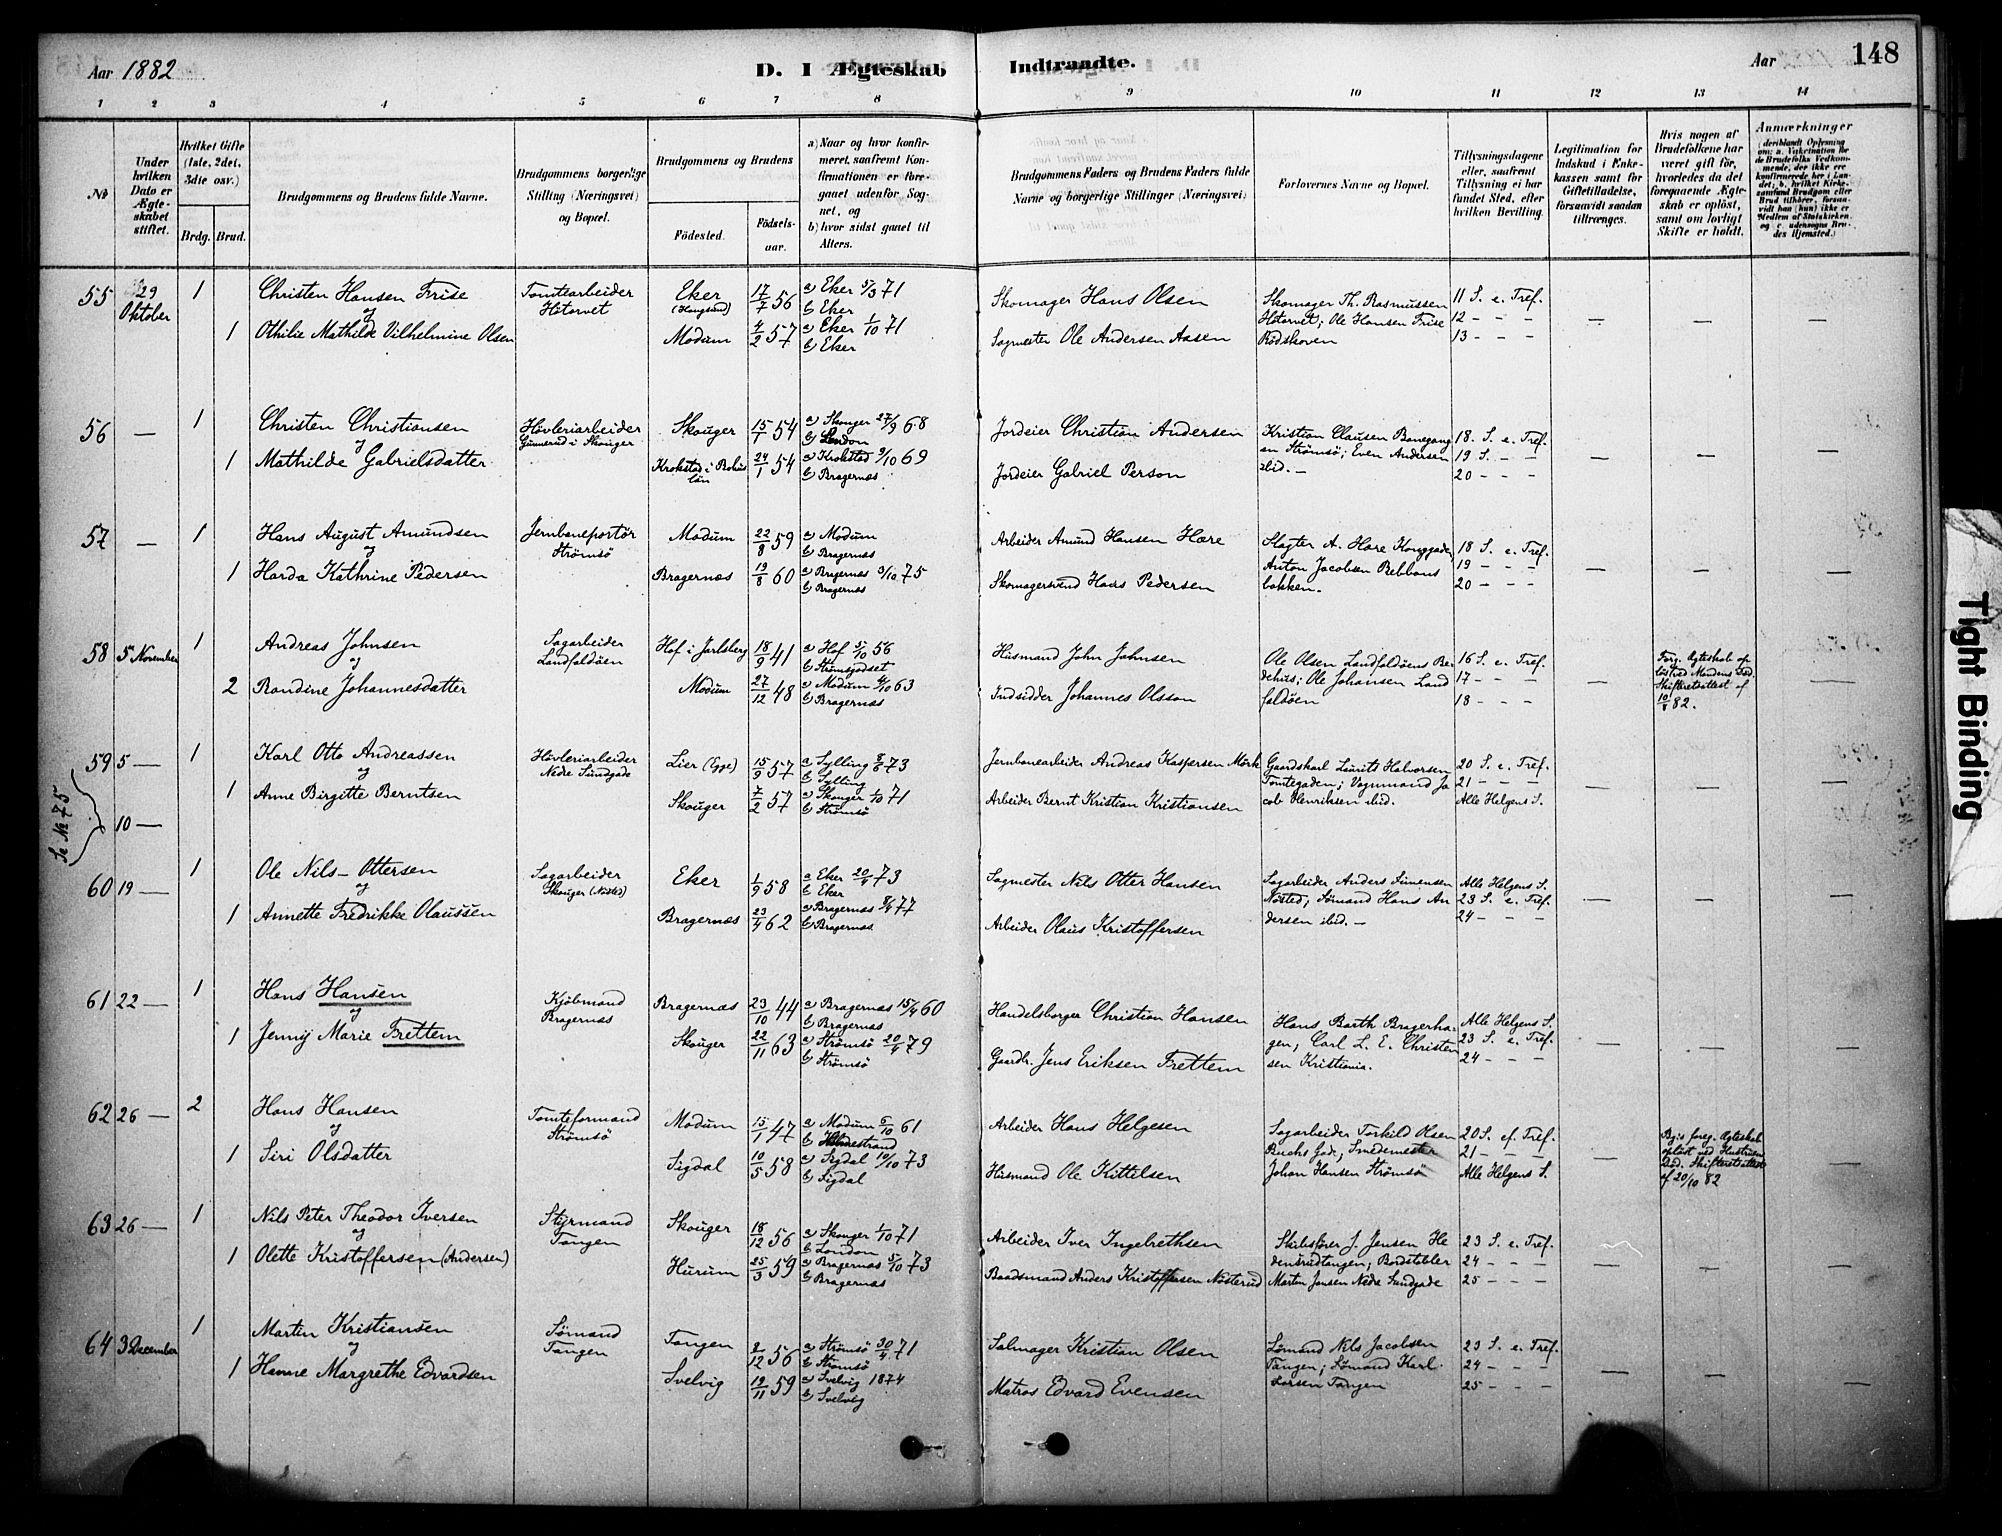 Aar 1882
D. I Ægteskab Indtraadte.
Aar
148
1 2 3 4 5 6 7 8 9 10 11 12 13 14
No
Under hvilken Dato er Ægteskabet stiftet.
Hvilket Gifte (1ste, 2det, 3die osv.)
Brdg. Brud.
Brudgommens og Brudens fulde Navne.
Brudgommens borgerlige Stilling (Næringsvei) og Bopæl.
Brudgommens og Brudens
Fødested.
Fødselsaar.
a) Naar og hvor konfirmeret, saafremt Konfirmationen er foregaaet udenfor Sognet, og
b) hvor sidst gaaet til Alters.
Brudgommens Faders og Brudens Faders fulde Navne og borgerlige Stillinger (Næringsvei)
Forlovernes Navne og Bopæl.
Tillysningsdagene eller, saafremt Tillysning ei har fundet Sted, efter hvilken Bevilling.
Legitimation for Indskud i Enkekassen samt for Giftetilladelse, forsaavidt saadan tiltrænges.
Hvis nogen af Brudefolkene har været gift før, hvorledes da det foregaaende Ægteskab er opløst, samt om lovligt Skifte er holdt.
Anmærkninger
55 29 Oktober 1 Christen Hansen Frise Tomtearbeider Eker 17/7 56 a) Eker 5/3 71 Skomager Hans Olsen Skomager Th. Rasmussen 11 S. e. Tref.
og Hötorvet (Hougsund) b) Eker Hötorvet; Ole Hansen Frise 12 - - -
1 Othilie Mathilde Vilhelmine Olsen Modum 4/2 57 a) Eker 1/10 71 b) Eker Sagmester Ole Andersen Aasen Rödskoven 13 - - -
56 — 1 Christen Christiansen Hövleriarbeider Skouger 15/1 54 a) Skouger 27/9 68 b) London Jordeier Christian Andersen Kristian Clausen Banegang 18. S. e. Tref.
og Gunnerud i Skouger en Strømsö; Even Andersen 19 S. - -
1 Mathilde Gabrielsdatter Krokstad i Bohus län 24/1 54 a) Krokstad 9/10 69 b) Bragernæs Jordeier Gabriel Person ibid. — 20 - - -
57 — 1 Hans August Amundsen Jernbaneportör Modum 22/8 59 a) Modum b) Bragernæs Arbeider Amund Hansen Hære Slagter A. Hære Konggade, 18 S. e. Tref.
og Strömsö Anton Jacobsen 19 - - -
1 Harda Kathrine Pedersen Bragernæs 19/8 60 a) Bragernæs 3/10 75 b) Bragernæs Skomagersvend Hans Pedersen bakken. 20 - - -
58 5 November 1 Andreas Johnsen Sagarbeider Hof i Jarlsberg 18/9 41 a) Hof 5/10 56 b) Strømsgodset Husmand John Johnsen Ole Olsen Landfaldöens Be 16 S. e. Tref. Forg. Ægteskab op
og Landfaldöen dehus; Ole Johansen Land 17 - - - löst ved Mandens Död.
2 Randine Johannesdatter Modum 27/12 48 a) Modum 4/10 63 b) Bragernæs Indsidder Johannes Olsson faldöen 18 - - - Skifteretsattest af 10/8 82.
59 5 — 1 Karl Otto Andreassen Hövleriarbeider Lier (Egge) 15/9 57 a) Sylling 8/6 73 b) Sylling Jernbanearbeider Andreas Kaspersen Mörk Gaardskarl Laurits Halvorsen 20 S. e. Tref.
og Nedre Sundgade Tomtegaden; Vognmand Ja 21 - - -
1 Anne Birgitte Berntsen Skouger 7/2 57 a) Skouger 1/10 71 b) Strömsö Arbeider Bernt Kristian Kristiansen cob Henriksen ibid. Alle Helgens S.
Se No 75
10 —
60 19 — 1 Ole Nils-Ottersen Sagarbeider Eker 1/9 58 a) Eker 20/4 73 b) Eker Sagmester Nils Otter Hansen Sagarbeider Anders Simensen Alle Helgens S.
og Skouger (Nösted) Nösted; Sömand Hans An 23 S. e. Tref.
1 Annette Fredrikke Olaussen Bragernæs 23/4 62 a) Bragernæs 8/4 77 b) Bragernæs Arbeider Olaus Kristoffersen dersen ibid. — 24 - - -
61 22 — 1 Hans Hansen Kjöbmand Bragernæs 23/10 44 a) Bragernæs 15/4 60 b) Bragernæs Handelsborger Christian Hansen Hans Barth Bragerha Alle Helgens S.
og Bragernæs gen, Carl L. E. Christen 23 S. e. Tref.
1 Jenny Marie Frettem Skouger 22/11 63 a) Strömsö 20/4 79 b) Strömsö Gaardbr. Jens Eriksen Frettem sen Kristiania. 24 - - -
62 26 — 2 Hans Hansen Tomteformand Modum 15/1 47 a) Modum 6/10 61 b) Holmestrand Arbeider Hans Helgesen Sagarbeider Torkild Olsen 20 S. ef. Tref. foreg. Ægteskab
og Strömsö Buchs Gade, Smedemester 21 - - - oplöst ved Hustruens
1 Siri Olsdatter Sigdal 10/5 58 a) Sigdal 19/10 73 b) Sigdal Husmand Ole Kittelsen Johan Hansen Strömsö Alle Helgens S. Död. Skifteretsattest af 20/10 82
63 26 — 1 Nils Peter Theodor Iversen Styrmand Skouger 18/12 56 a) Skouger 1/10 71 b) London Arbeider Iver Ingebrethsen Skibsförer J. Jensen He 23 S. e. Tref.
og Tangen densrudtangen; 24 - - -
1 Olette Kristoffersen (Andersen) Hurum 25/3 59 a) Bragernæs 5/10 73 b) Bragernæs Baadsmand Anders Kristoffersen Nösterud Martin Jensen Nedre Sundgade 25 - - -
64 3 December 1 Martin Kristiansen Sömand Tangen 2/12 56 a) Strömsö 30/4 71 b) Strömsö Salmager Kristian Olsen Sömand Nils Jacobsen 23 S. e. Tref.
og Tangen Tangen; Sömand Karl 24 - - -
1 Hanne Margrethe Edvardsen Svelvig 19/11 59 a) Svelvig 1874 b) Svelvig Matros Edvard Evensen Larsen Tangen 25 - - -
Tight Binding